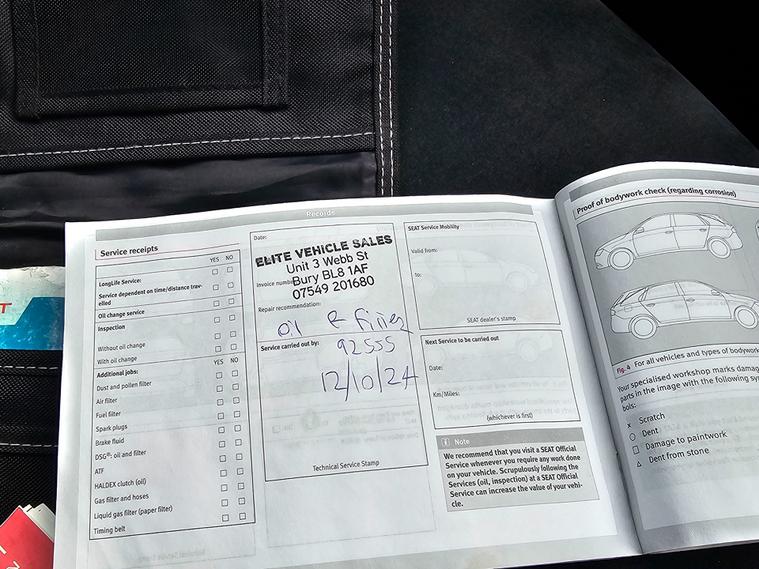 Records
Service receipts
YES NO
LongLife Service:
Service dependent on time/distance trav-
elled
Oil change service
Inspection
Without oil change
With oil change
YES NO
Additional jobs:
Dust and pollen filter
Air filter
Fuel filter
Spark plugs
Brake fluid
DSG®: oil and filter
ATF
HALDEX clutch (oil)
Gas filter and hoses
Liquid gas filter (paper filter)
Timing belt
Date:
ELITE VEHICLE SALES
Unit 3 Webb St
Invoice number
Bury BL8 1AF
07549 201680
Repair recommendation:
oil & filter
Service carried out by:
92555
12/10/24
Technical Service Stamp
SEAT Service Mobility
Valid from:
to:
SEAT dealer's stamp
Next Service to be carried out
Date:
Km/Miles:
(whichever is first)
i Note
We recommend that you visit a SEAT Official
Service whenever you require any work done
on your vehicle. Scrupulously following the
Services (oil, inspection) at a SEAT Official
Service can increase the value of your vehi-
cle.
Proof of bodywork check (regarding corrosion)
Fig. 4 For all vehicles and types of bodywork
Your specialised workshop marks damag
parts in the image with the following sy
bols:
x Scratch
○ Dent
□ Damage to paintwork
△ Dent from stone